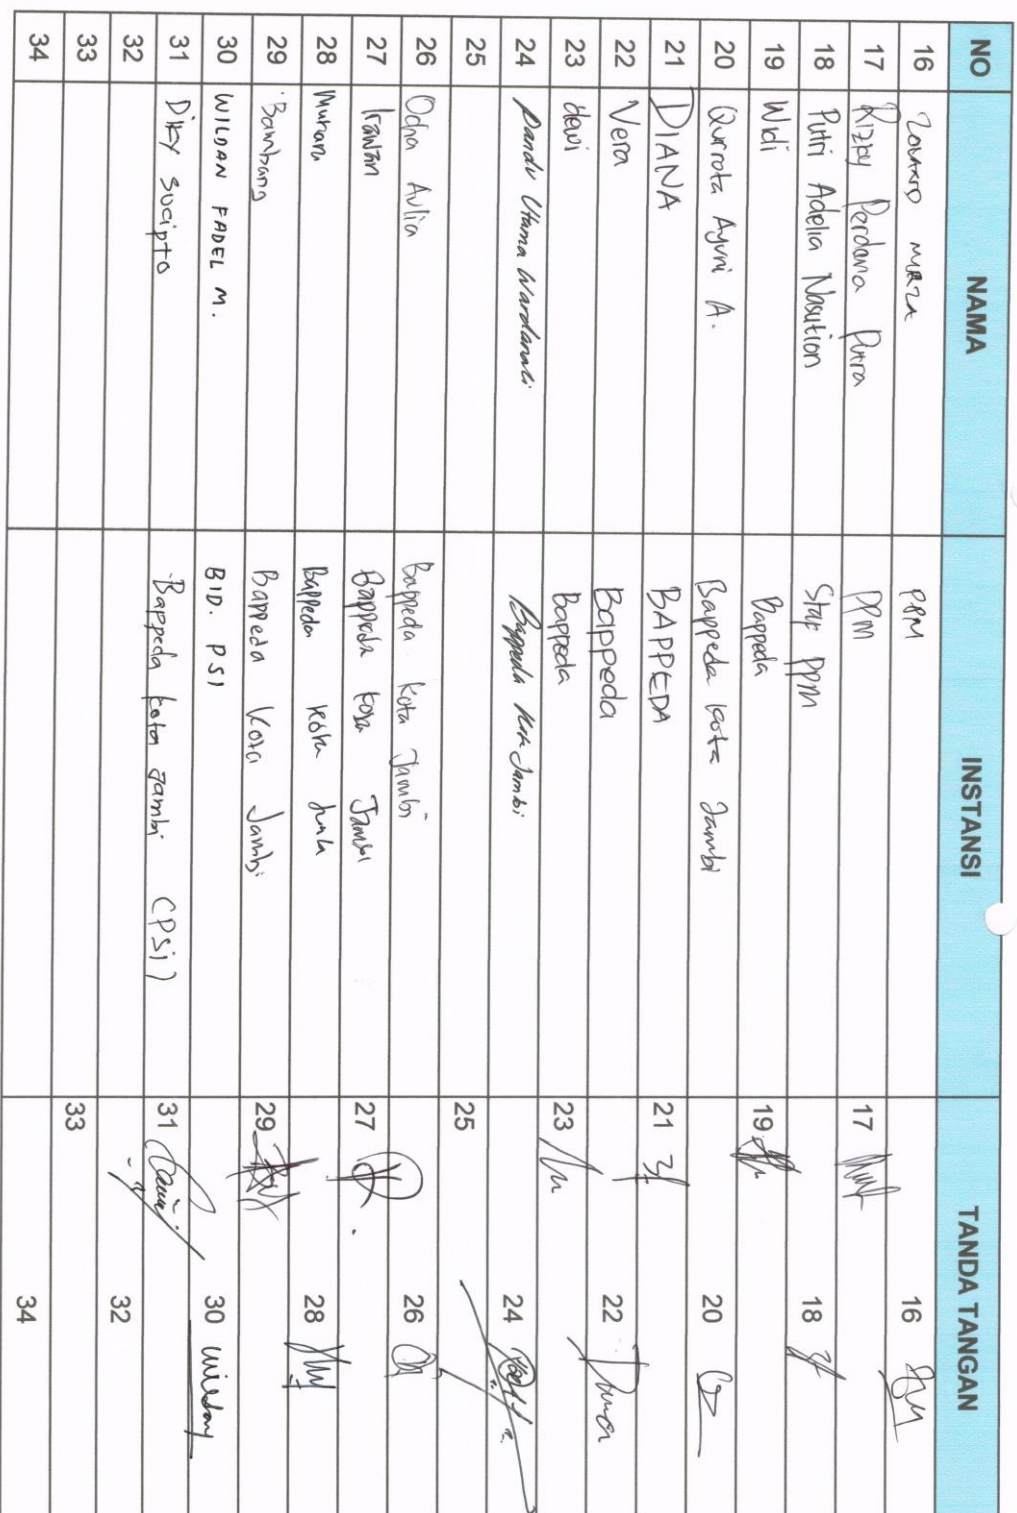 NO NAMA INSTANSI TANDA TANGAN
16 PPM 16
17 Rizky Perdana Putra PPM 17
18 Putri Adelia Nasution Staf PPM 18
19 Widi Bappeda 19
20 Qurrota Ayuni A. Bappeda kota Jambi 20
21 DIANA BAPPEDA 21
22 Vera Bappeda 22
23 dewi Bappeda 23
24 Pandu Utama Wardanali Bappeda Kota Jambi 24
25 25
26 Ocha Aulia Bappeda Kota Jambi 26
27 Irawan Bappeda Kota Jambi 27
28 Bappeda Kota 28
29 Bambang Bappeda Kota Jambi 29
30 WILDAN FADEL M. BID. PSI 30
31 DIKY Sucipto Bappeda kota Jambi (PSI) 31
32 32
33 33
34 34